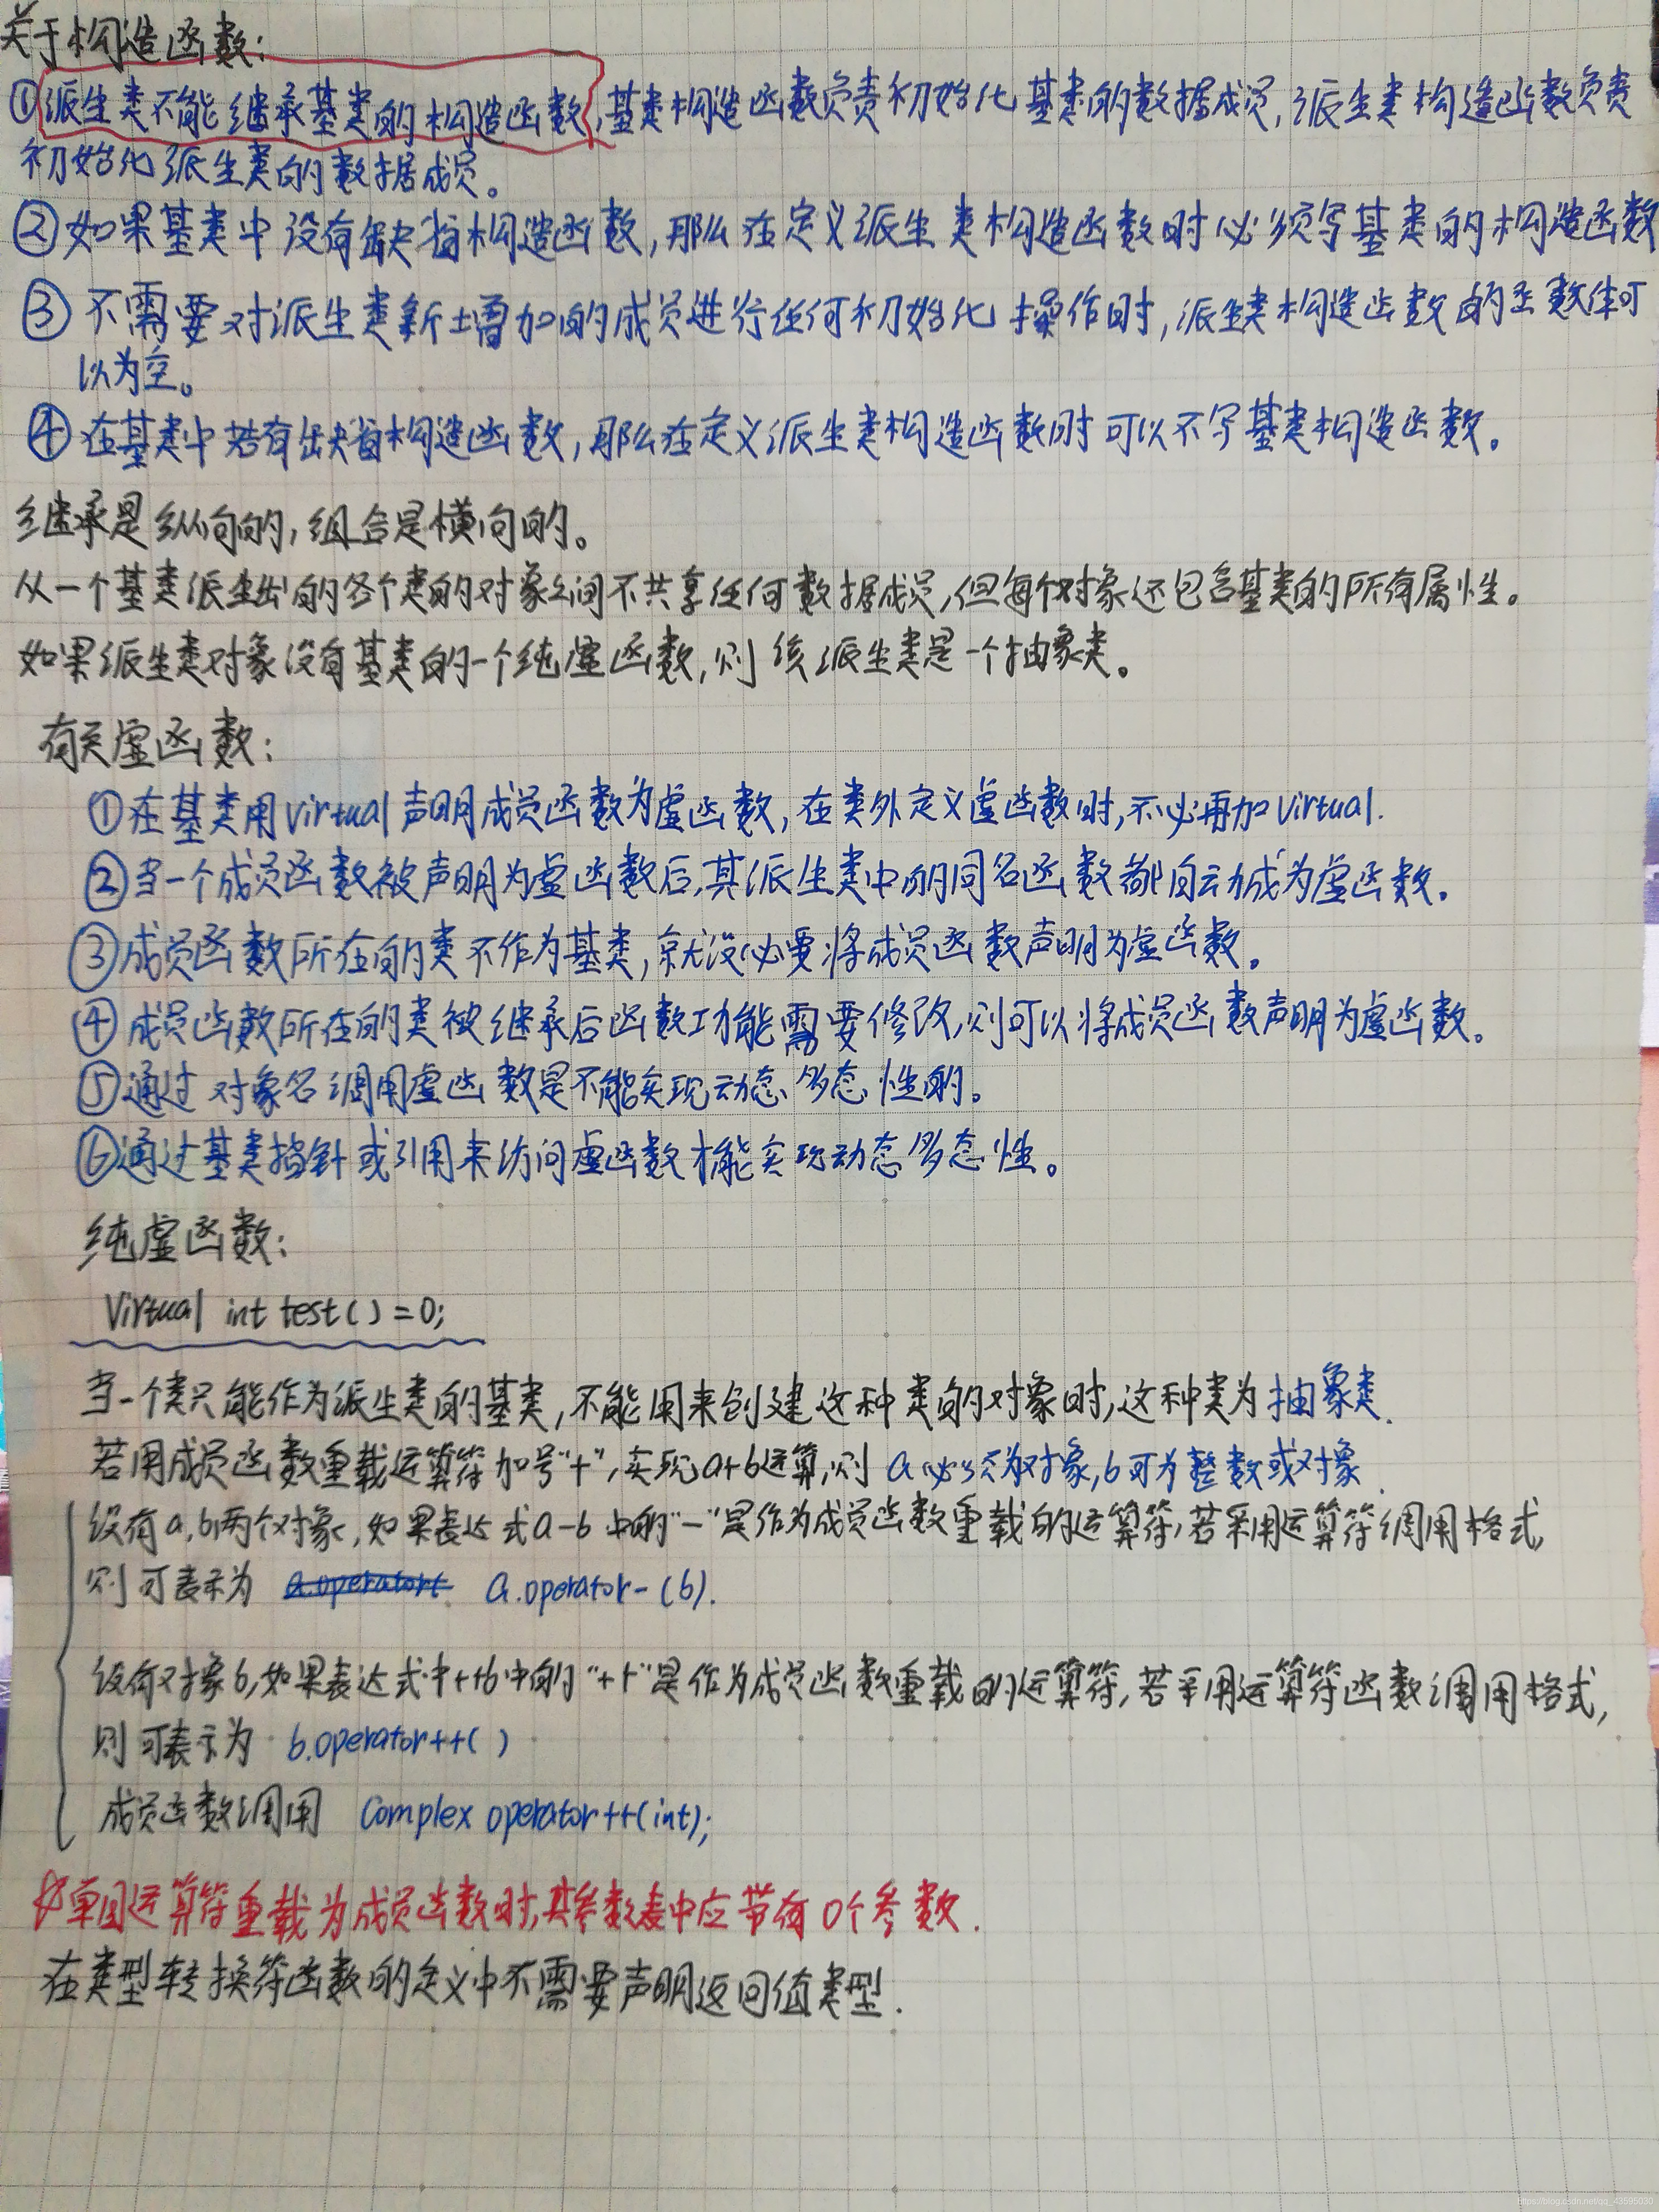 关于构造函数:
①派生类不能继承基类的构造函数,基类构造函数负责初始化基类的数据成员,派生类构造函数负责
初始化派生类的数据成员。
②如果基类中没有缺省构造函数,那么在定义派生类构造函数时必须写基类的构造函数
③不需要对派生类新增加的成员进行任何初始化操作时,派生类构造函数的函数体可
以为空。
④在基类中若有缺省构造函数,那么在定义派生类构造函数时可以不写基类构造函数。
继承是纵向的,组合是横向的。
从一个基类派生出的各个类的对象之间不共享任何数据成员,但每个对象还包含基类的所有属性。
如果派生类对象没有基类的一个纯虚函数,则该派生类是一个抽象类。
有关虚函数:
①在基类用virtual声明成员函数为虚函数,在类外定义虚函数时,不必再加virtual.
②当一个成员函数被声明为虚函数后,其派生类中的同名函数都自动成为虚函数。
③成员函数所在的类不作为基类,就没必要将成员函数声明为虚函数。
④成员函数所在的类被继承后函数功能需要修改,则可以将成员函数声明为虚函数。
⑤通过对象名调用虚函数是不能实现动态多态性的。
⑥通过基类指针或引用来访问虚函数才能实现动态多态性。
纯虚函数:
Virtual int test()=0;
当一个类只能作为派生类的基类,不能用来创建这种类的对象时,这种类为抽象类.
若用成员函数重载运算符加号"+",实现a+b运算,则a必须为对象,b可为整数或对象.
设有a,b两个对象,如果表达式a-b中的"-"是作为成员函数重载的运算符,若采用运算符调用格式,
则可表示为 a.operator a.operator-(b).
设有对象b,如果表达式中++b中的"++"是作为成员函数重载的运算符,若采用运算符函数调用格式,
则可表示为 b.operator++()
成员函数调用 Complex operator++(int);
单目运算符重载为成员函数时,其参数表中应带有0个参数.
在类型转换符函数的定义中不需要声明返回值类型.
https://blog.csdn.net/qq_43595030